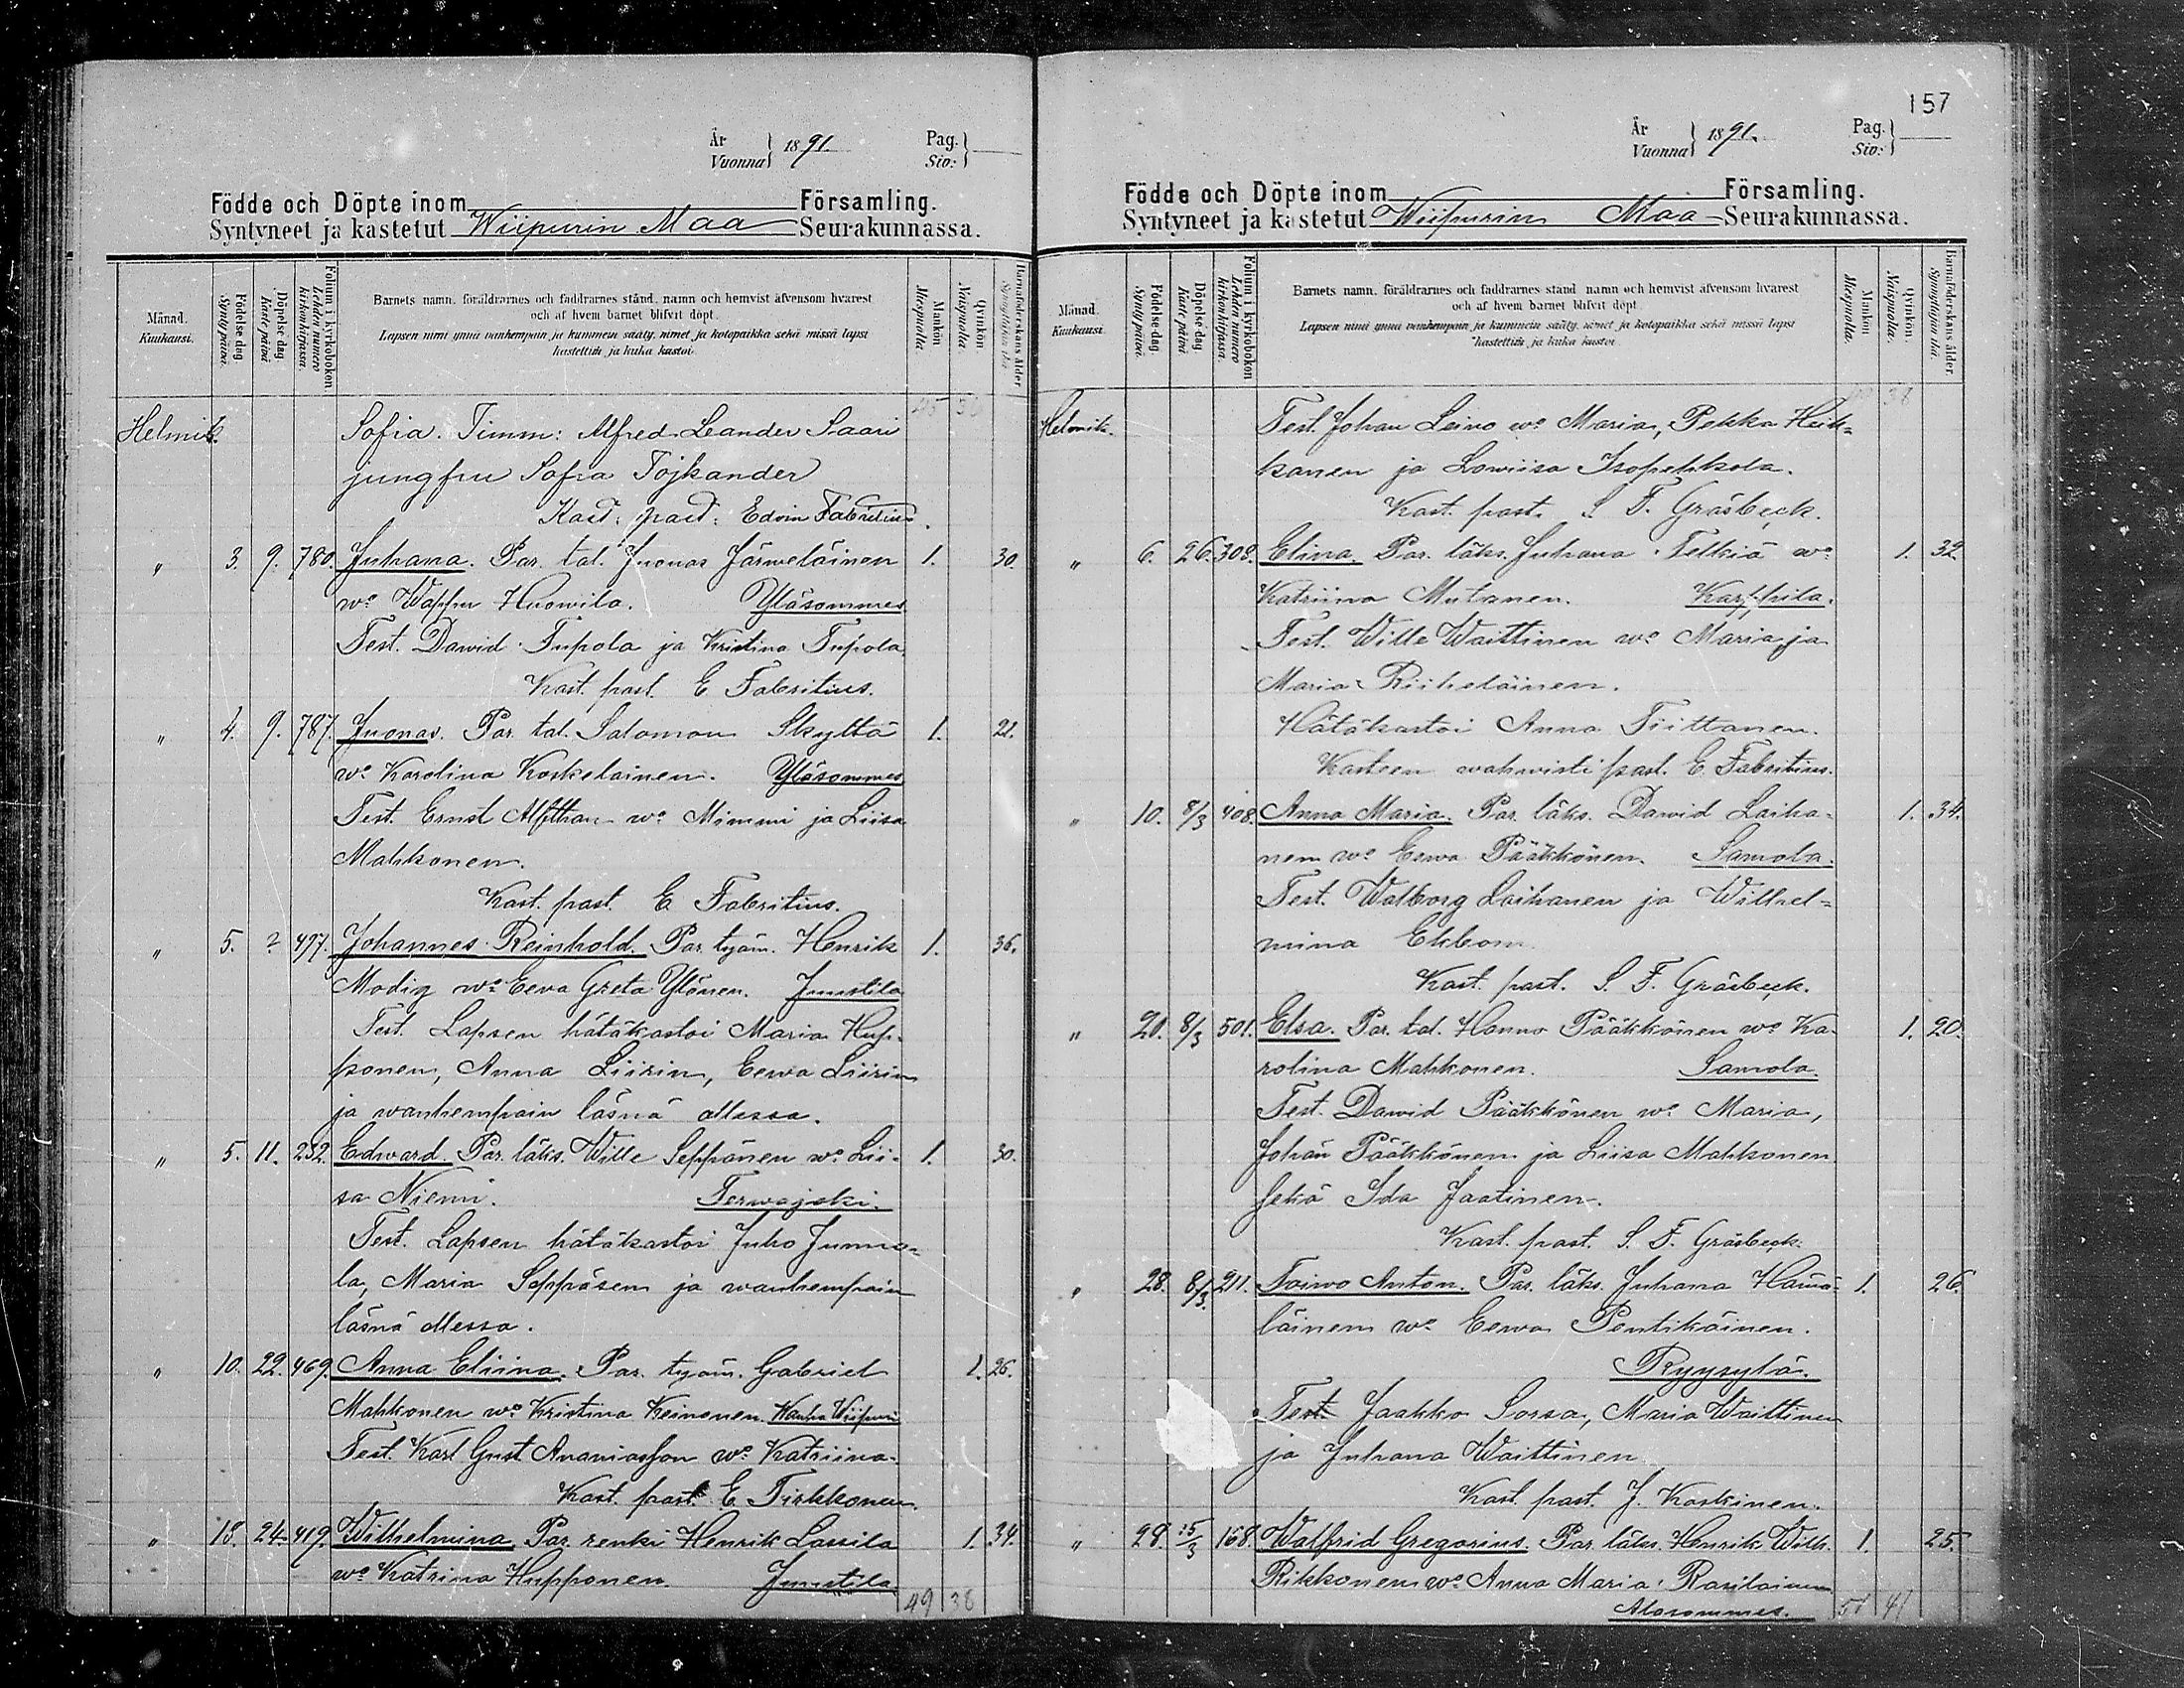 År
Vuonna } 1891. Pag.
Siv: }
Födde och Döpte inom Församling.
Syntyneet ja kastetut Wiipurin Maa Seurakunnassa.
Månad.
Kuukausi.
Födelse dag.
Synty päivä.
Döpelse dag.
Kaste päivä
Folium i kyrkoboken
Lehden numero
kirkonkirjassa.
Barnets namn, föräldrarnes och faddrarnes stånd, namn och hemvist äfvensom hvarest
och af hvem barnet blifvit döpt.
Lapsen nimi ynnä vanhempain ja kummein sääty, nimet ja kotopaikka sekä missä lapsi
kastettiin ja kuka kastoi.
Mankön
Miespuolia.
Qvinkön
Naispuolia.
Barnaföderskans ålder
Synnyttäjän ikä.
Helmik. Sofia. Timm: Alfred Leander Saari
jungfru Sofia Töjkander
Kast. past: Edvin Fabritius.
" 3. 9. 780. Juhana. Par. tal. Juonas Järweläinen 1. 30.
wo Wappu Huowila. Yläsommes
Test. Dawid Tupola ja Kristina Tupola.
Kast. past. E Fabritius.
" 4. 9. 787. Juonas. Par. tal. Salomon Skyltä 1. 21.
wo Karolina Koskelainen. Yläsommes
Test. Ernst Alfthan wo Mimmi ja Liisa
Mahkonen.
Kast. past. E. Fabritius.
" 5. ? 497. Johannes Reinhold. Par. tyäm. Henrik 1. 36.
Modig wo Eeva Greta Ylönen. Juustila
Test. Lapsen hätäkastoi Maria Hup-
ponen, Anna Liirin, Eewa Liirin
ja wanhempain läsnä ollessa.
" 5. 11. 232. Edward. Par. läks. Wille Seppänen wo Lii- 1. 30.
sa Niemi. Terwajoki.
Test. Lapsen hätäkastoi Juho Junno-
la, Maria Seppäsen ja wanhempain
läsnä ollessa.
" 10. 22. 469. Anna Eliina. Par. tyäm. Gabriel 1. 26.
Mahkonen wo Kristina Keinonen. Wanha Wiipuri
Test. Karl Gust. Ananiasson wo Katriina.
Kast. past. E. Tirkkonen.
" 18. 24. 419. Wilhelmina. Par. renki Henrik Lassila 1. 34.
wo Katrina Hupponen. Juustila
49 38
157
År
Vuonna } 1891. Pag.
Siv: }
Födde och Döpte inom Församling.
Syntyneet ja kastetut Wiipurin Maa Seurakunnassa.
Månad.
Kuukausi.
Födelse dag.
Synty päivä.
Döpelse dag.
Kaste päivä
Folium i kyrkoboken
Lehden numero
kirkonkirjassa.
Barnets namn, föräldrarnes och faddrarnes stånd, namn och hemvist äfvensom hvarest
och af hvem barnet blifvit döpt.
Lapsen nimi ynnä vanhempain ja kummein sääty, nimet ja kotopaikka sekä missä lapsi
kastettiin ja kuka kastoi.
Mankön
Miespuolia.
Qvinkön.
Naispuolia.
Barnaföderskans ålder.
Synnyttäjän ikä.
Helmik. Test. Johan Leino wo Maria, Pekka Heik-
kanen ja Lowiisa Isopehkola.
Kast. past. S. F. Gräsbeck.
" 6. 26. 308. Elina. Par. läks. Juhana Telkiä wo 1. 32.
Katriina Mutanen. Karppila.
Test. Wille Waittinen wo Maria, ja
Maria Riiheläinen.
Hätäkastoi Anna Tiittanen.
Kasteen wahwisti past. E. Fabritius.
" 10. 8/3 408. Anna Maria. Par. läks. Dawid Laiha- 1. 34.
nen wo Eewa Pääkkönen. Samola.
Test. Walborg Laihanen ja Wilhel-
mina Ekbom.
Kast. past. S. F. Gräsbeck.
" 20. 8/3 501. Elsa. Par. tal. Hanno Pääkkönen wo Ka- 1. 20.
rolina Mahkonen. Samola.
Test. Dawid Pääkkönen wo Maria,
Johan Pääkkönen ja Liisa Mahkonen
sekä Ida Jaatinen.
Kast. past. S. F. Gräsbeck.
" 28. 8/3. 211. Toiwo Anton. Par. läks. Juhana Hämä- 1. 26.
läinen wo Eewa Pentikäinen.
Ryysylä.
Test. Jaakko Sorsa, Maria Waittinen
ja Juhana Waittinen.
Kast. past. J. Koskinen.
" 28. 15/3 168. Walfrid Gregorius. Par. läks. Henrik Wilh. 1. 25.
Rikkonen wo Anna Maria Rasilainen
Alasommes.
51 41